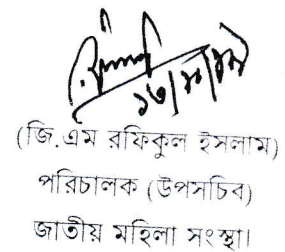 (জি.এম রফিকুল ইসলাম)
পরিচালক (উপসচিব)
জাতীয় মহিলা সংস্থা।